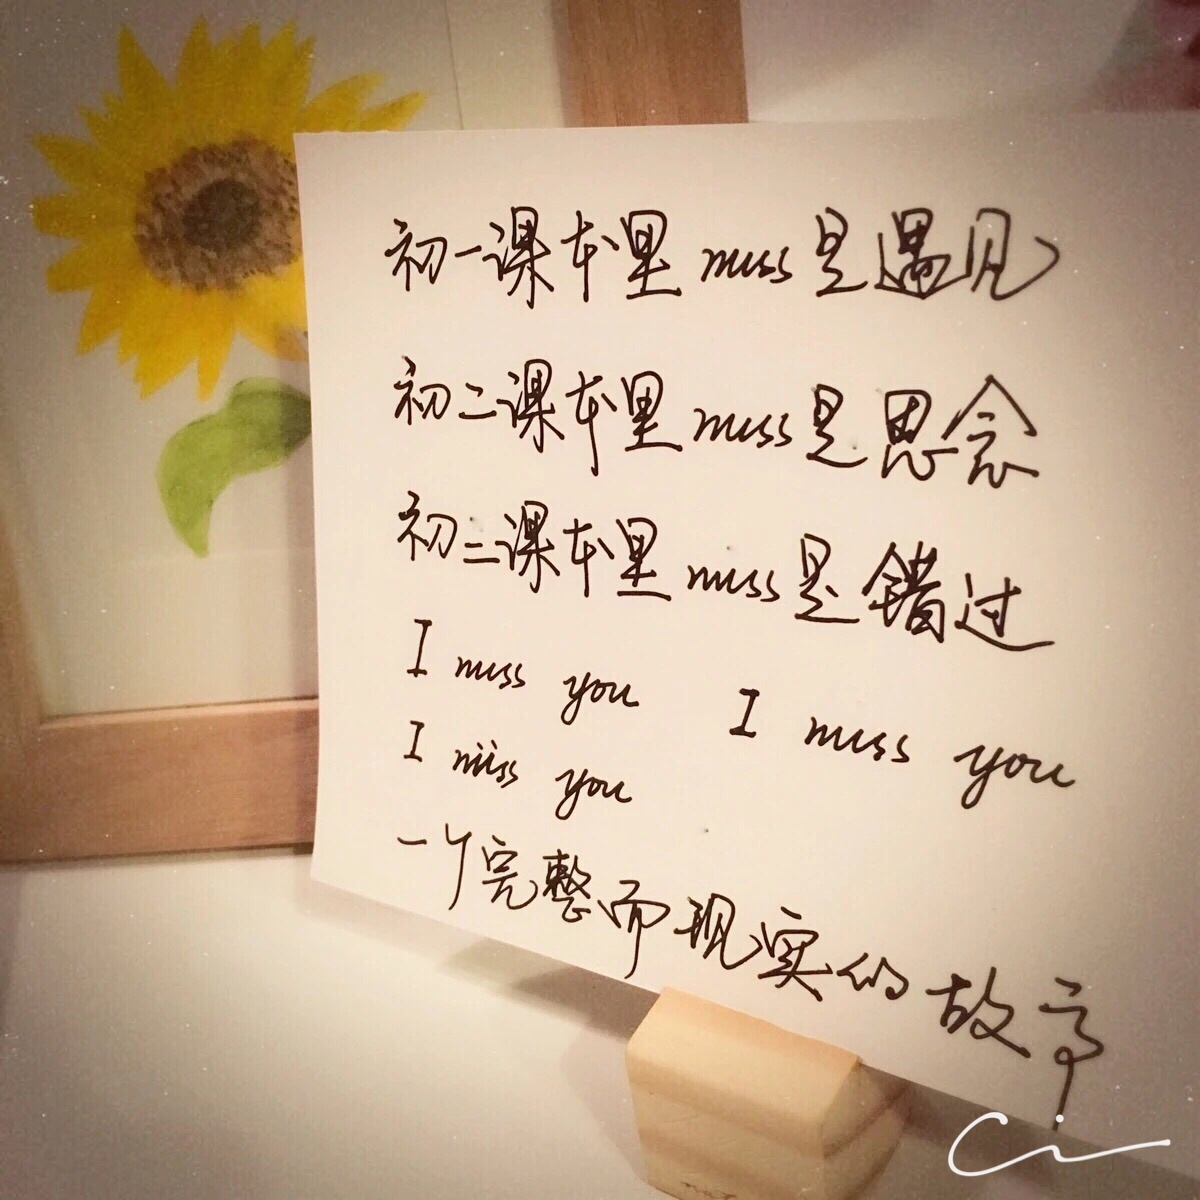 初一课本里miss是遇见
初二课本里miss是思念
初三课本里miss是错过
I miss you I miss you
I miss you
一个完整而现实的故事
Ci